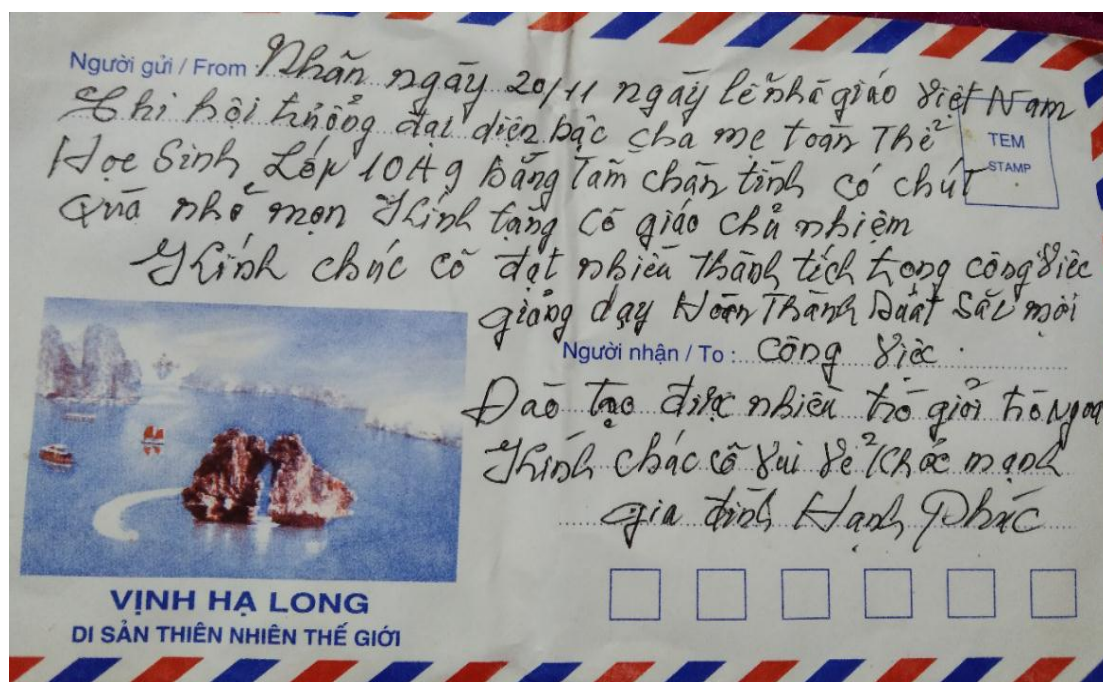 Người gửi / From: Nhân ngày 20/11 ngày lễ nhà giáo Việt Nam
Chi hội trưởng đại diện bậc cha mẹ toàn Thể
TEM
STAMP
Học Sinh Lớp 10A9 bằng Tấm chân tình có chút
Quà nhỏ mọn Kính tặng cô giáo chủ nhiệm
Kính chúc cô đạt nhiều Thành tích trong công việc
giảng dạy Hoàn Thành Xuất Sắc mọi
Người nhận / To: Công Việc.
Đào tạo được nhiều trò giỏi trò Ngoa
Kính chúc cô Vui Vẻ Khỏe mạnh
gia đình Hạnh Phúc
VỊNH HẠ LONG
DI SẢN THIÊN NHIÊN THẾ GIỚI